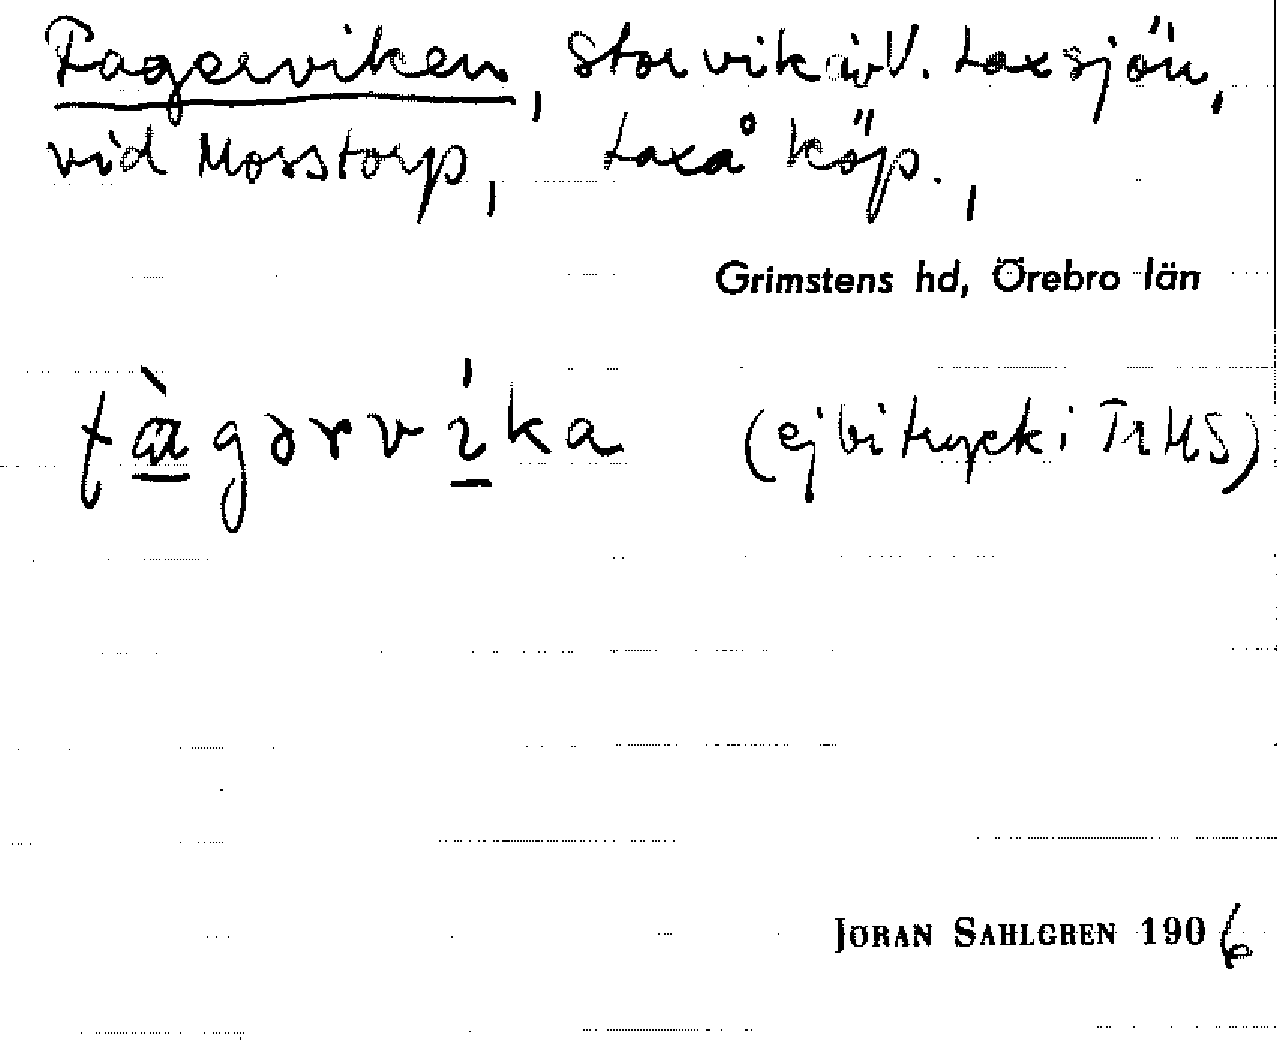 Fagerviken, stor vik i v. Laxsjön,
vid Mosstorp, Laxå köp.,
Grimstens hd, Örebro län
fàgərvíka (ej bitryck i TrMS)
JÖRAN SAHLGREN 1906